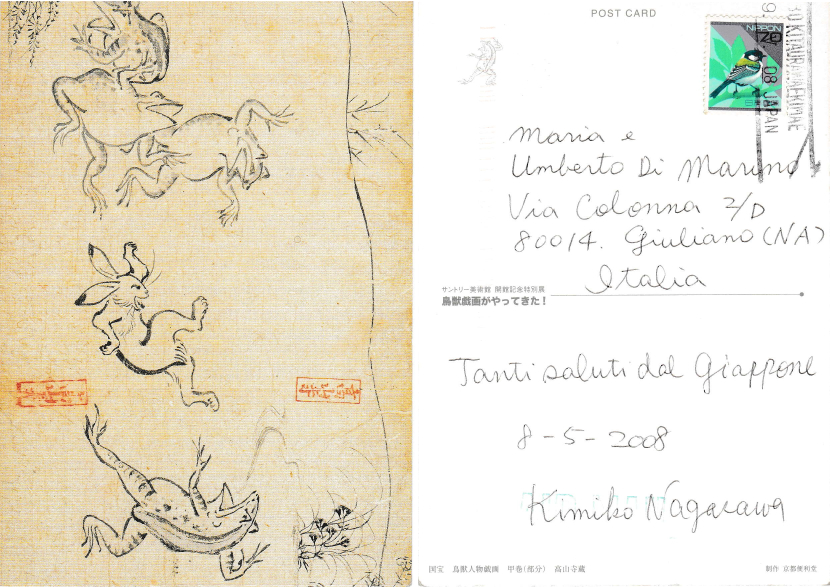 POST CARD
NIPPON
08 JAPAN
Maria e
Umberto Di Marino
Via Colonna 2/D
80014. Giuliano (NA)
Italia
サントリー美術館 開館記念特別展
鳥獣戯画がやってきた！
Tanti saluti dal Giappone
8-5-2008
Kimiko Nagasawa
国宝 鳥獣人物戯画 甲巻(部分) 高山寺蔵
制作 京都便利堂